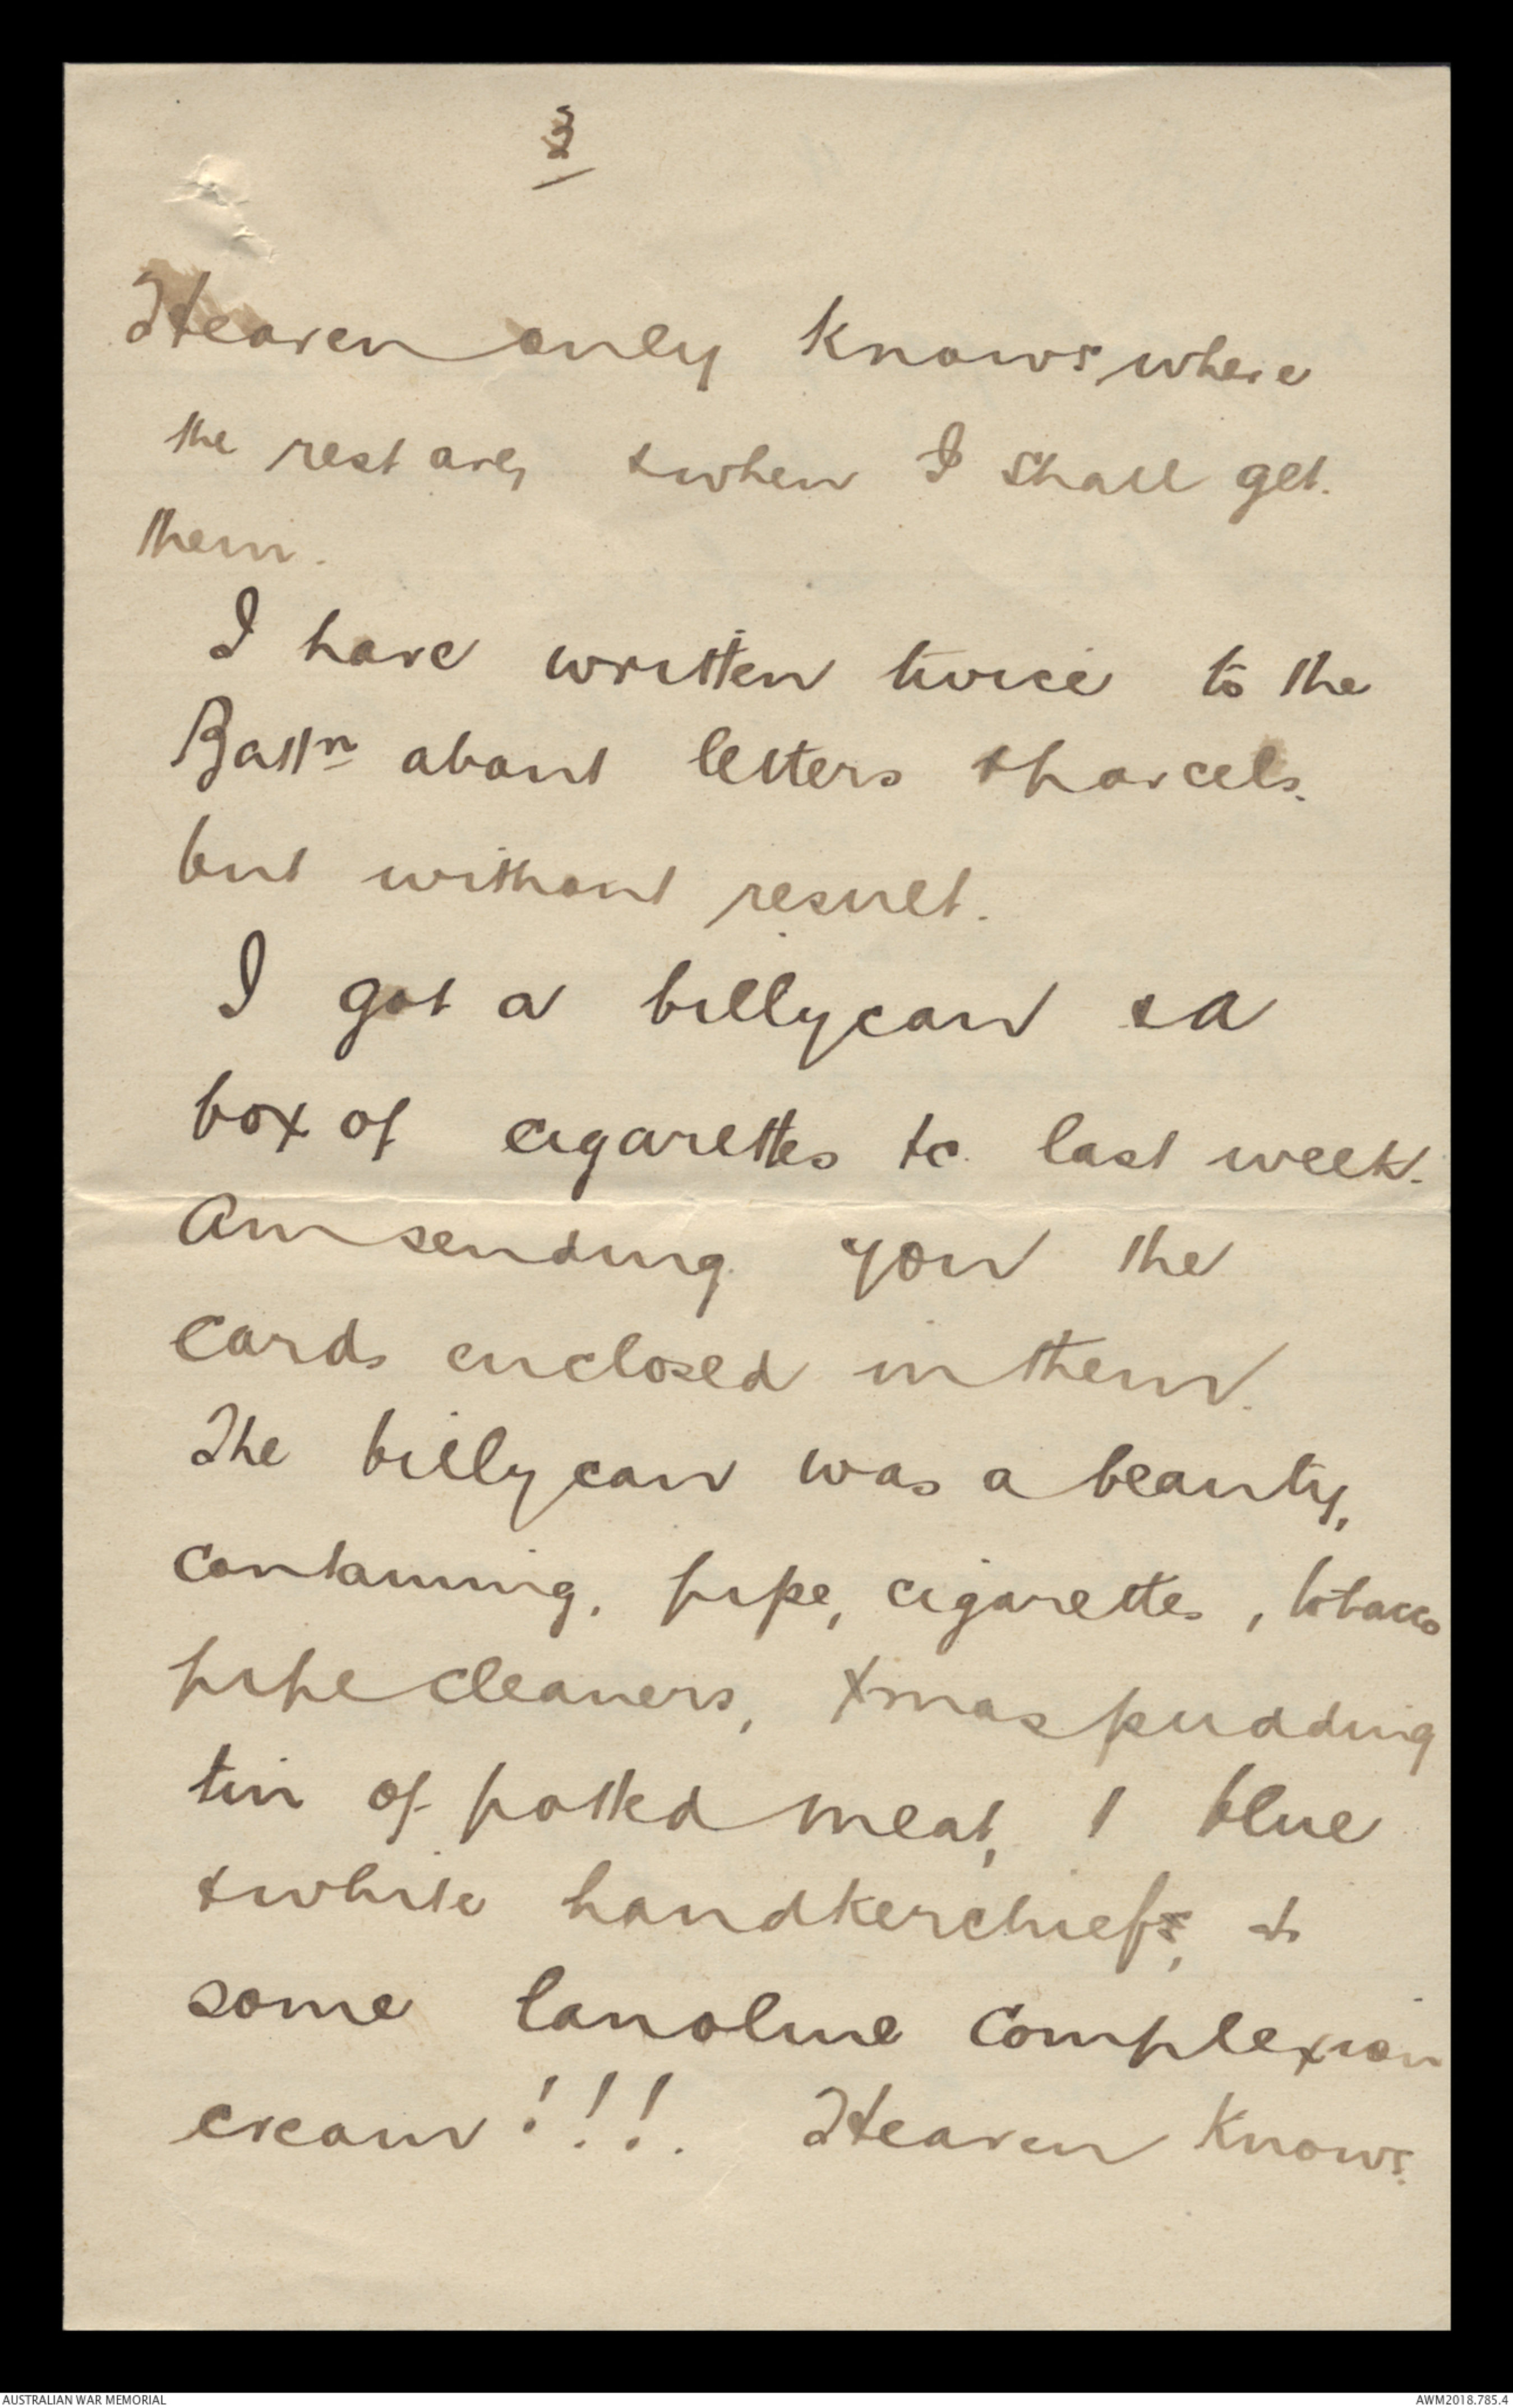 3
Heaven only knows where
the rest are, & when I shall get
them.
I have written twice to the
Battn about letters & parcels.
but without result.
I got a billycan & a
box of cigarettes &c. last week.
Am sending you the
cards enclosed in them.
The billycan was a beauty,
containing, pipe, cigarettes, tobacco
pipe cleaners, Xmas pudding
tin of potted meat, 1 blue
& white handkerchief, &
some lanoline complexion
cream!!!. Heaven knows.
AUSTRALIAN WAR MEMORIAL
AWM2018.785.4